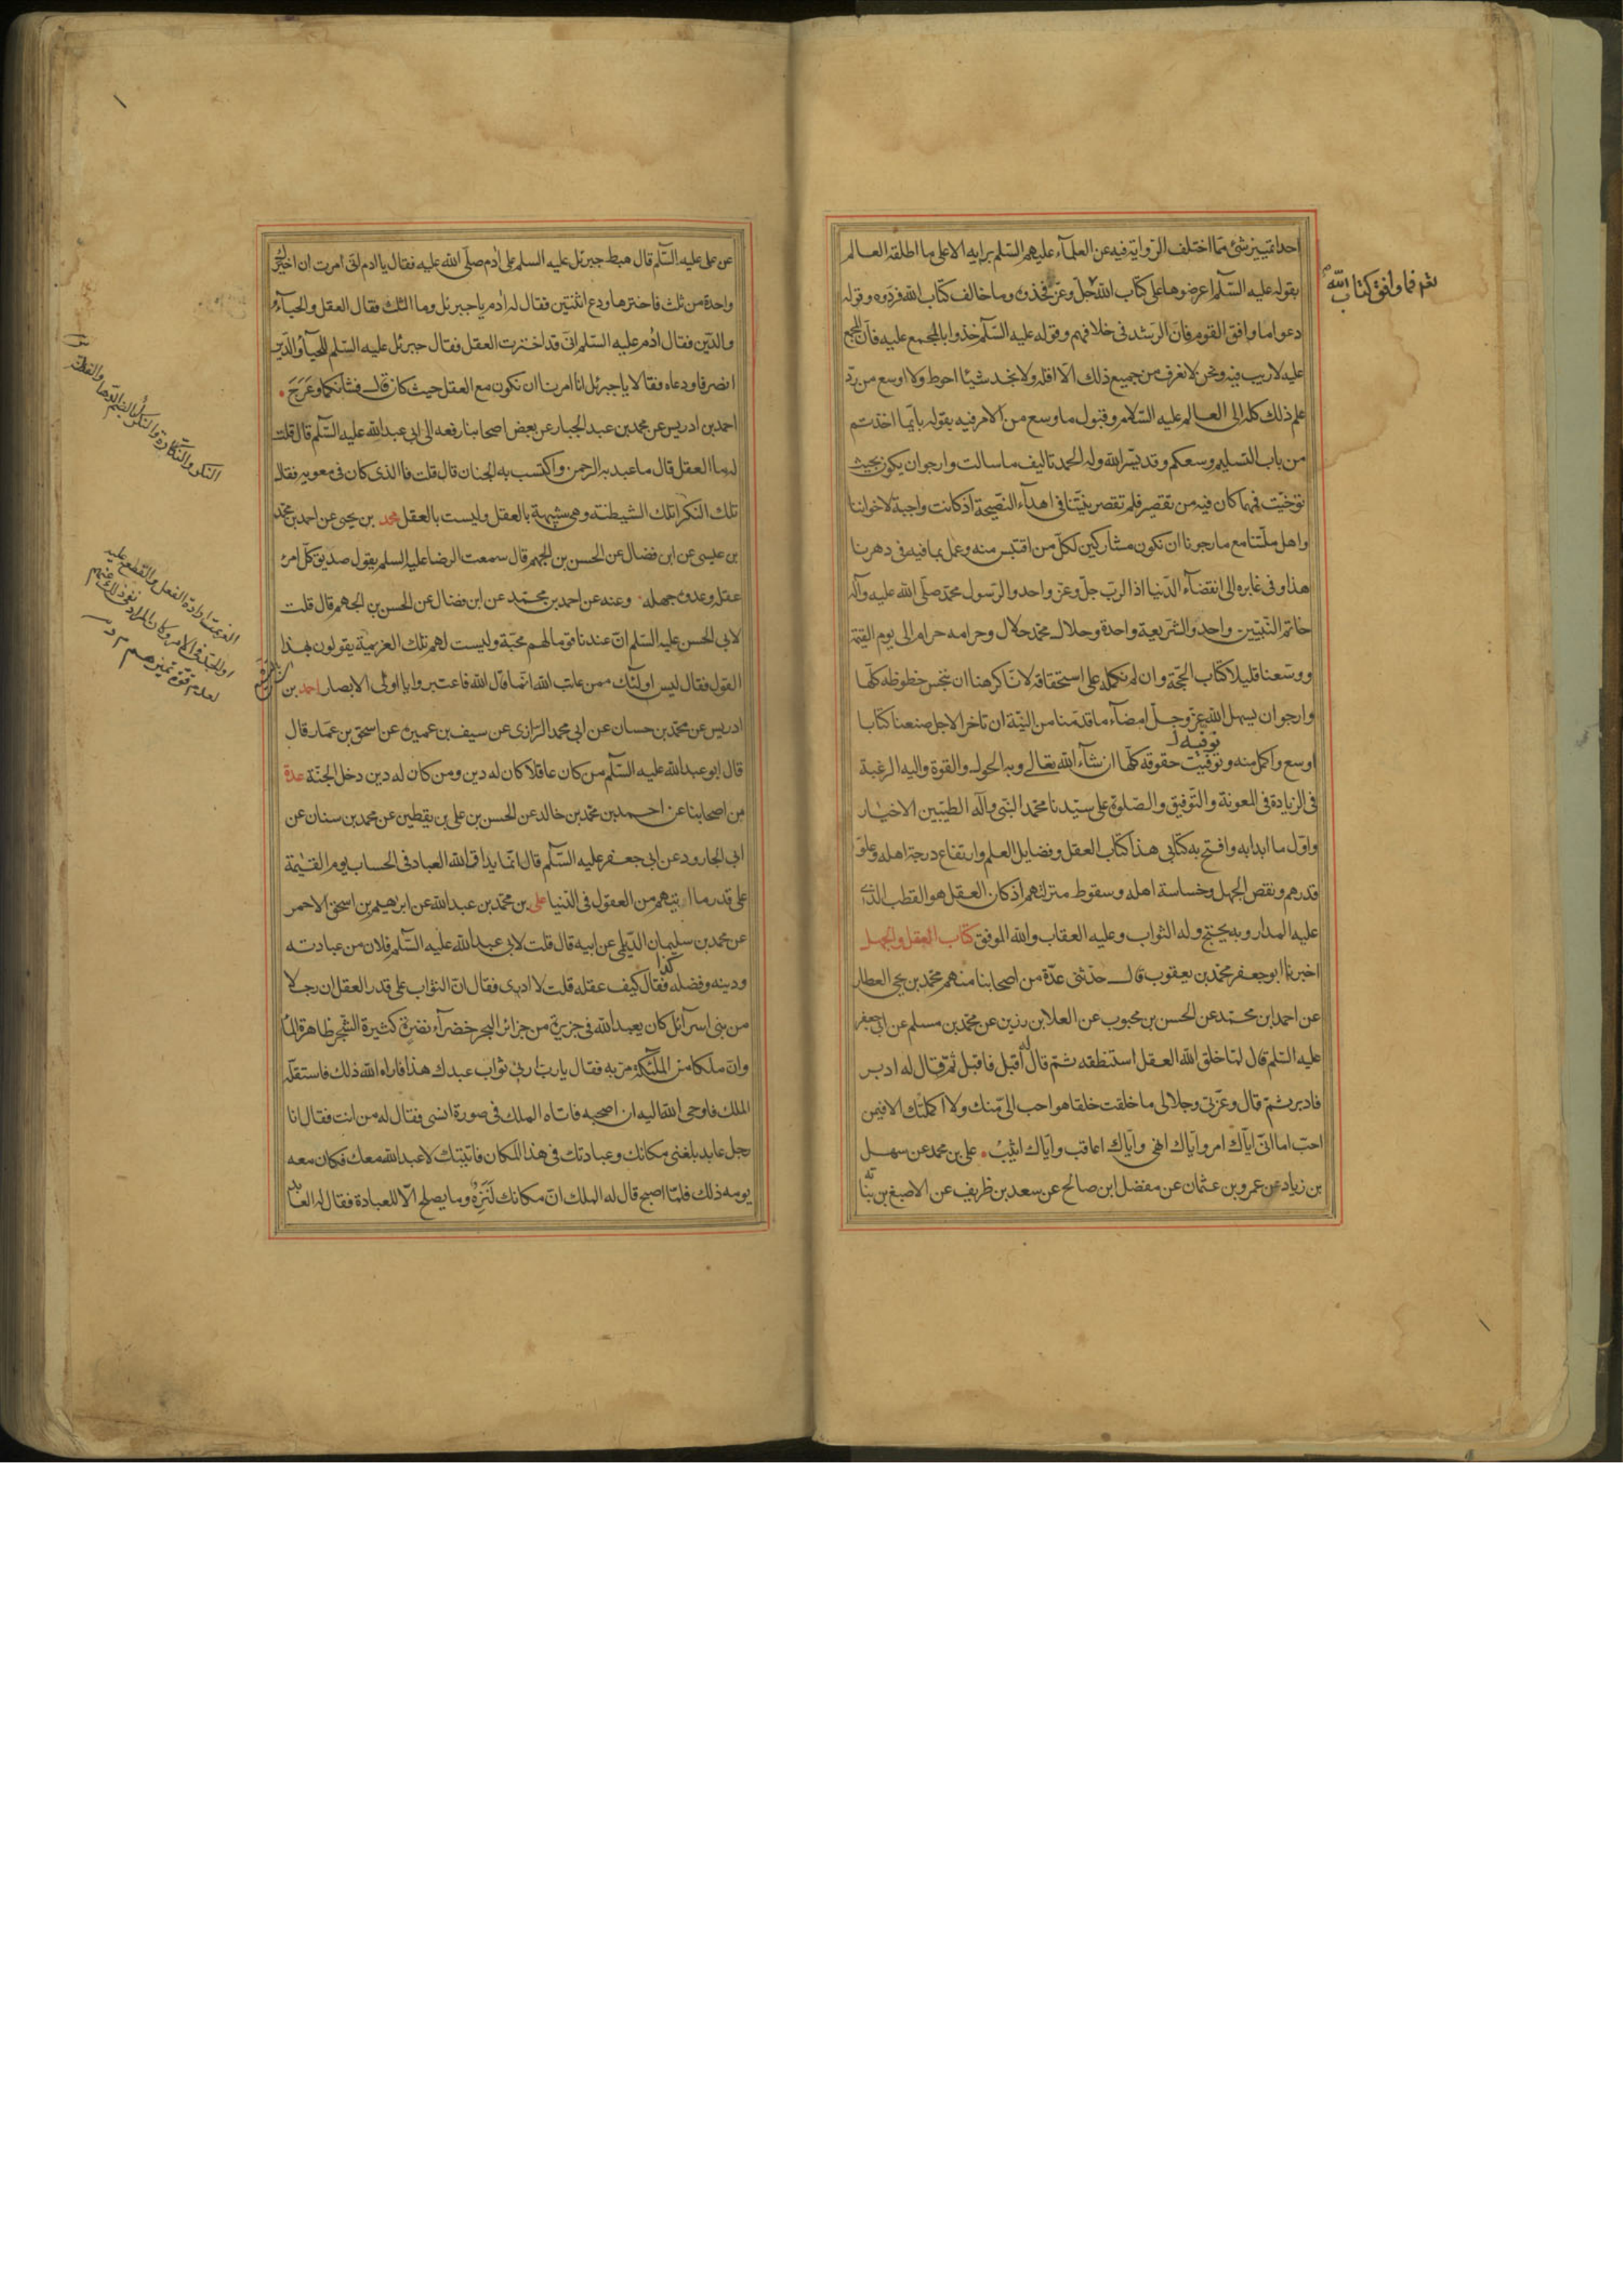 احدا تمييز شئ مما اختلف الرواية فيه عن العلمآء عليهم السّلم برايه الا على ما اطلقه العالم
بقوله عليه السّلم اعرضوها على كتاب الله جلّ وعزّ فخذوه وما خالف كتاب الله فردّوه وقوله
ثم فما وافق كتاب الله
دعوا ما وافق القوم فانّ الرشد فى خلافهم وقوله عليه السّلم خذوا بالمجمع عليه فانّ المجمع
عليه لا ريب فيه ونحن لا نعرف من جميع ذلك الا اقله ولا نجد شيئا احوط ولا اوسع من ردّ
علم ذلك كله الى العالم عليه السّلام وقبول ما وسع من الامر فيه بقوله بايّما اخذتم
من باب التسليم وسعكم وقد يسّر الله وله الحمد تاليف ما سالت وارجو ان يكون بحيث
توخيّت فمهما كان فيه من تقصير فلم تقصر نيّتنا فى اهدآء النصيحة اذ كانت واجبة لاخواننا
واهل ملّتنا مع ما رجونا ان نكون مشاركين لكلّ من اقتبس منه وعمل بما فيه فى دهرنا
هذا وفى غابره الى انقضآء الدّنيا اذ الربّ جلّ وعزّ واحد والرّسول محمّد صلّى الله عليه وآله
خاتم النّبيّين واحد والشريعة واحدة وحلال محمّد حلال وحرامه حرام الى يوم القيمة
ووسّعنا قليلا كتاب الحجّة وان لم نكمله على استحقاقه لانّا كرهنا ان نبخس حظوظه كلّها
وارجو ان يسهل الله عزّ وجلّ امضآء ما قدّمنا من النيّة ان تاخر الاجل صنعنا كتابا
اوسع واكمل منه ونوفيت حقوقه كلّها ان شآء الله تعالى وبه الحول والقوة واليه الرغبة
نوفيه
فى الزيادة فى المعونة والتّوفيق والصّلوة على سيّدنا محمّد النّبى وآله الطيّبين الاخيار
واوّل ما ابدا به وافتتح به كتابى هذا كتاب العقل وفضايل العلم وارتفاع درجة اهله وعلوّ
قدرهم ونقص الجهل وخساسة اهله وسقوط منزلتهم اذ كان العقل هو القطب الذى
عليه المدار وبه يحتج وله الثواب وعليه العقاب والله الموفق كتاب العقل والجهل
اخبرنا ابو جعفر محمّد بن يعقوب قال حدّثنى عدّة من اصحابنا منهم محمّد بن يحيى العطار
عن احمد ابن محمّد عن الحسن بن محبوب عن العلا بن رزين عن محمّد بن مسلم عن ابى جعفر
عليه السّلم قال لمّا خلق الله العقل استنطقه ثمّ قال له اقبل فاقبل ثم قال له ادبر
فادبر ثمّ قال وعزّتى وجلالى ما خلقت خلقا هو احب الىّ منك ولا اكملتك الا فيمن
احبّ اما انّى ايّاك امر وايّاك انهى وايّاك اعاقب وايّاك اثيبُ علىّ بن محمد عن سهل
بن زياد عن عمرو بن عثمان عن مفضل ابن صالح عن سعد بن ظريف عن الاصبغ بن نباته
عن على عليه السّلم قال هبط جبرئل عليه السلم على ادم صلّى الله عليه فقال يا ادم انّى امرت ان اخيرك
واحدة من ثلث فاخترها ودع اثنتين فقال له ادم يا جبرئل وما الثلث فقال العقل والحيآء
والدّين فقال ادم عليه السّلم انّى قد اخترت العقل فقال جبرئل عليه السّلم للحيآ والدّين
انصرفا ودعاه فقالا يا جبرئل انا امرنا ان نكون مع العقل حيث كان قال فشانكما وعَرَجَ
احمد بن ادريس عن محمد بن عبد الجبار عن بعض اصحابنا رفعه الى ابى عبد الله عليه السّلم قال قلت
له ما العقل قال ما عبد به الرحمن واكتسب به الجنان قال قلت فالذى كان فى معويه فقال
تلك النكرا تلك الشيطنة وهى شبيهة بالعقل وليست بالعقل محمد بن يحيى عن احمد بن محمّد
بن عيسى عن ابن فضال عن الحسن بن الجهم قال سمعت الرضا عليه السلم يقول صديق كلّ امرئ
عقله وعدوه جهله وعنه عن احمد بن محمّد عن ابن فضال عن الحسن بن الجهم قال قلت
لابى الحسن عليه السّلم انّ عندنا قوما لهم محبّة وليست لهم تلك العزيمة يقولون بهذا
القول فقال ليس اولئك ممن عاتب الله انّما قال الله فاعتبروا يا اولى الابصار احمد بن
ادريس عن محمّد بن حسان عن ابى محمد الرّازى عن سيف بن عميرة عن اسحق بن عمار قال
قال ابو عبد الله عليه السّلم من كان عاقلا كان له دين ومن كان له دين دخل الجنّة عدة
من اصحابنا عن احمد بن محمّد بن خالد عن الحسن بن على بن يقطين عن محمد بن سنان عن
ابى الجارود عن ابى جعفر عليه السّلم قال انّما يداقّ الله العباد فى الحساب يوم القيٰمة
على قدر ما اتيهم من العقول فى الدّنيا على بن محمّد بن عبد الله عن ابرهيم بن اسحق الاحمر
عن محمد بن سليمان الدّيلمى عن ابيه قال قلت لابى عبد الله عليه السّلم فلان من عبادته
ودينه وفضله كذا فقال كيف عقله قلت لا ادرى فقال انّ الثواب على قدر العقل ان رجلا
من بنى اسرآئل كان يعبد الله فى جزيرة من جزائر البحر خضرآء نضرة كثيرة الشّجر ظاهرة المآ
وانّ ملكا من الملٰئكة مرّ به فقال يا ربّ ارنى ثواب عبدك هذا فاراه الله ذلك فاستقلّه
الملك فاوحى الله اليه ان اصحبه فاتاه الملك فى صورة انسى فقال له من انت فقال انا
رجل عابد بلغنى مكانك وعبادتك فى هذا المكان فاتيتك لاعبد الله معك فكان معه
يومه ذلك فلمّا اصبح قال له الملك انّ مكانك لَنَزِهٌ وما يصلح الّا للعبادة فقال له العابد
العزيمة ارادة الفعل والقطع عليه